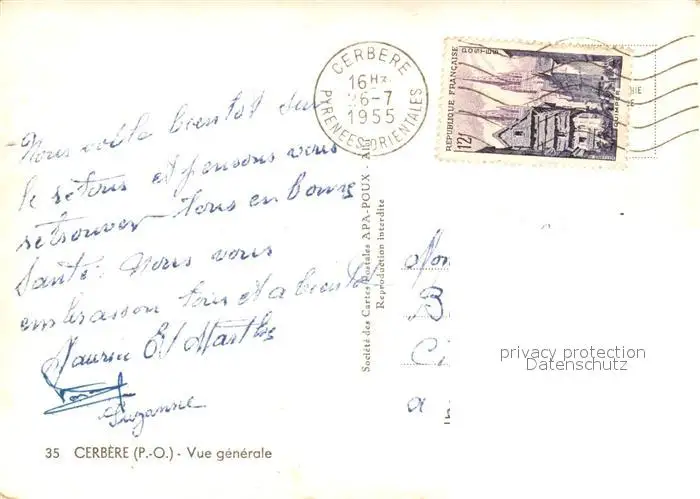 CERBERE
16H
26-7
1955
PYRENEES-ORIENTALES
REPUBLIQUE FRANÇAISE
POSTES
12F
QUIMPER
Nous voilà bientot sur
le retour et pensons vous
retrouver tous en bonne
santé. Nous vous
embrassons tous et a bientot
Maurice Et Marthe
Suzanne
35 CERBÈRE (P.-O.) - Vue générale
Société des Cartes Postales APA-POUX -
Reproduction interdite
a
privacy protection
Datenschutz